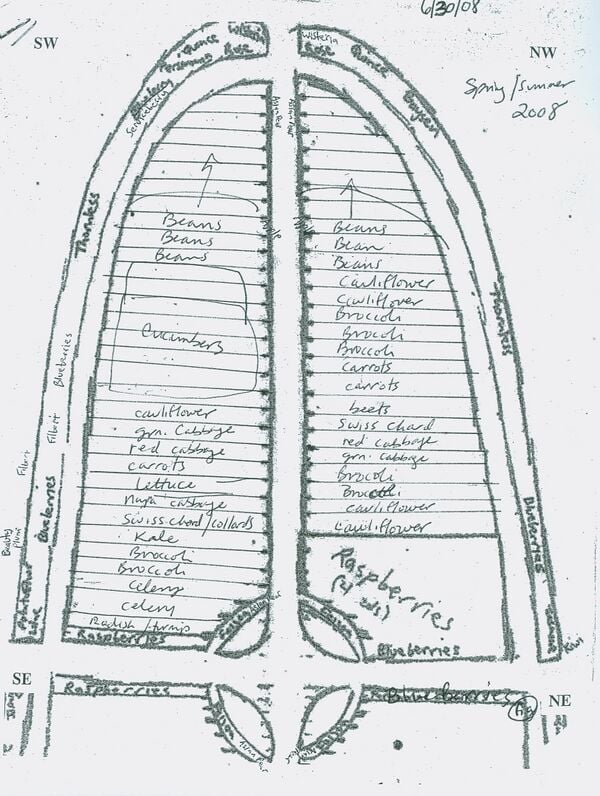 6/30/08
SW
NW
Spring/Summer
2008
Wisteria
Rose
Wisteria
Rose
Quince
Persimmons
Quince
Blueberry
Serviceberry
Thornless
Thornless
Beans
Beans
Beans
Cucumbers
cauliflower
grn. Cabbage
red cabbage
carrots
Lettuce
Napa cabbage
Swiss chard/collards
Kale
Brocoli
Brocoli
Celery
Celery
Radish/turnip
Raspberries
Beans
Bean
Beans
Cauliflower
Cauliflower
Broccoli
Brocoli
Broccoli
Carrots
carrots
beets
Swiss chard
red cabbage
grn. cabbage
Brocoli
Broccoli
cauliflower
Cauliflower
Raspberries
Blueberries
Blueberries
Filbert
Filbert
Blueberries
Blueberries
Kiwi
SE
NE
Raspberries
Blueberries
fig